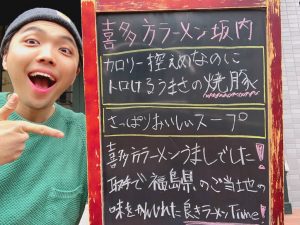 喜多方ラーメン坂内
カロリー控えめなのに
トロけるうまさの焼豚
さっぱりおいしいスープ
喜多方ラーメンうましでした!
取手で福島県のご当地の
味をかんじれた良きラーメンTime!